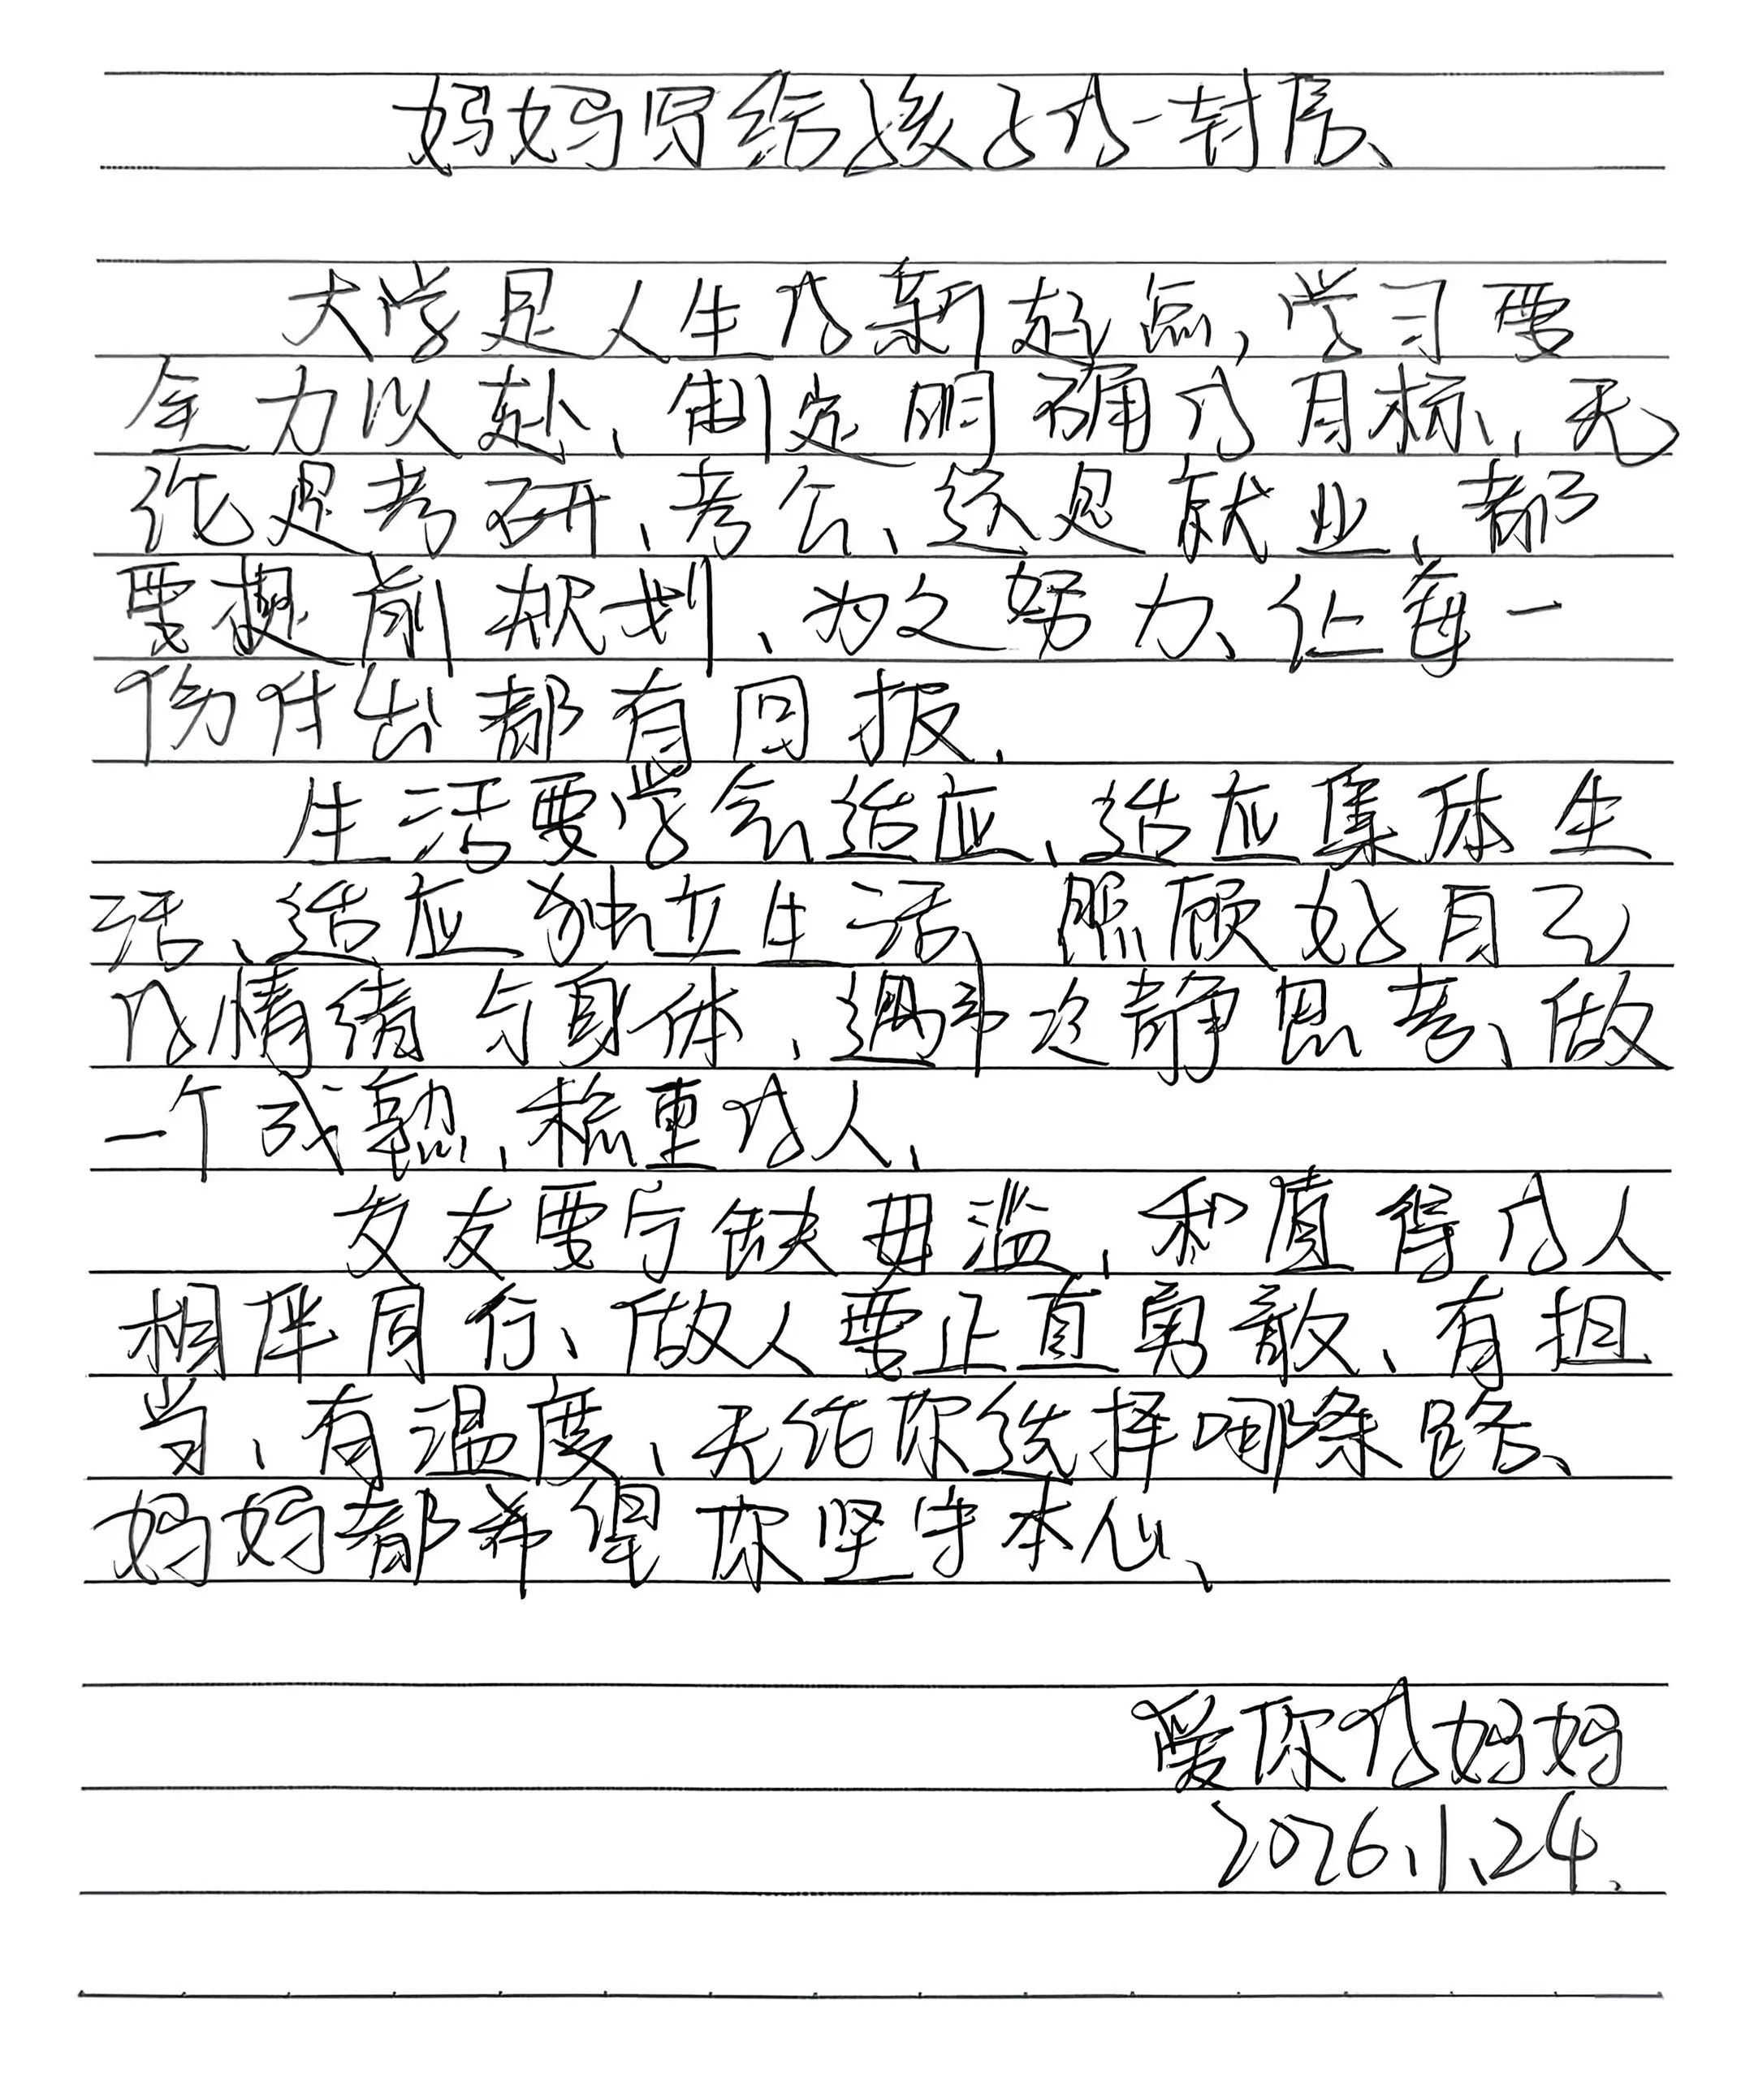 妈妈写给孩子的一封信、
大学是人生的新起点,学习要
全力以赴、制定明确的目标,无
论是考研、考公、还是就业、都
要提前规划、为之努力、让每一
份付出都有回报.
生活要学会适应、适应集体生
活、适应独立生活、照顾好自己
的情绪与身体,遇事冷静思考、做
一个成熟,稳重的人,
交友要宁缺毋滥,和值得的人
相伴同行、做人要正直勇敢、有担
当、有温度、无论你选择哪条路、
妈妈都希望你坚守本心、
爱你的妈妈
2026.1.24.